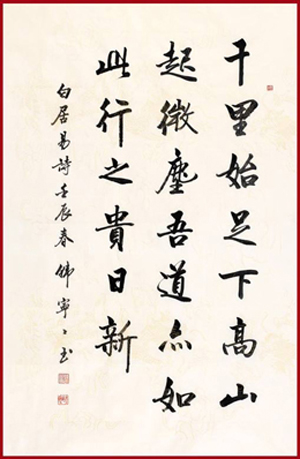 千里始足下高山
起微塵吾道亦如
此行之貴日新
白居易詩壬辰春韓寧〻书